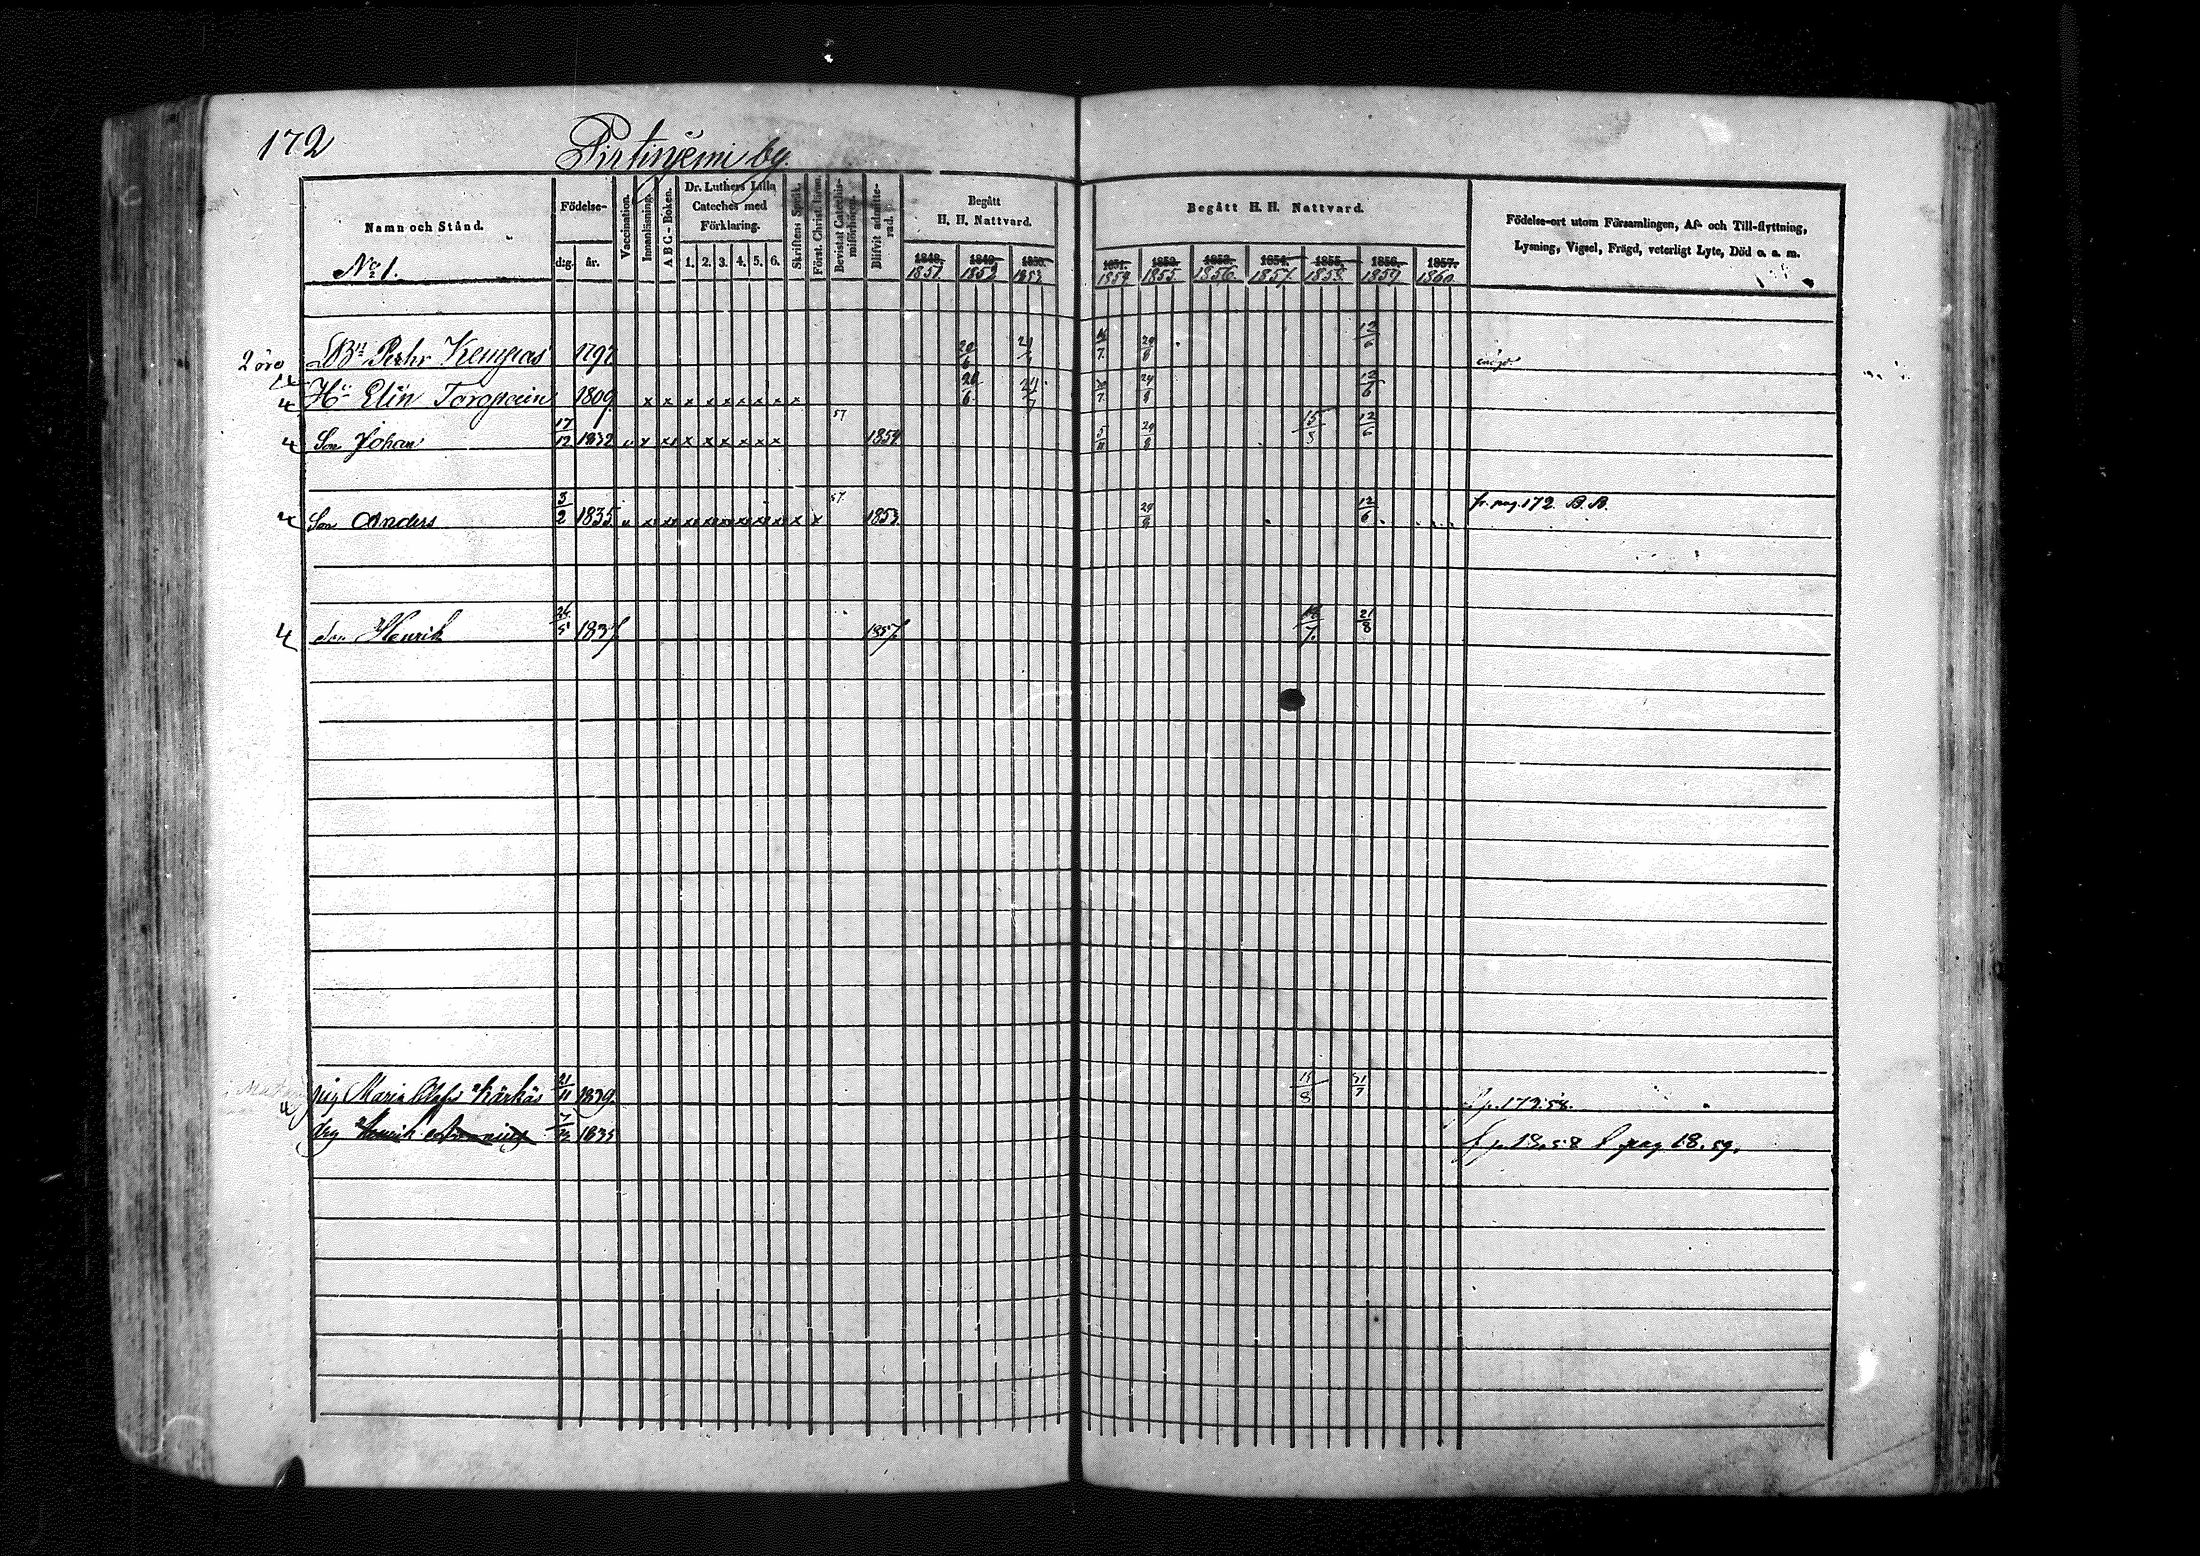 172
Pirtinjemi by.
Namn och Stånd.
Födelse-
dig. år.
Vaccination.
Innanläsning.
A B C - Boken.
Dr. Luthers Lilla
Cateches med
Förklaring.
1. 2. 3. 4. 5. 6.
Skriftens Språk.
Först. Christ. Lärom.
Bevistat Catechis-
miförhören.
Blifvit admitte-
rad.
Begått
H. H. Nattvard.
1848. 1849. 1850.
1851 1852 1853
Begått H. H. Nattvard.
1851. 1852. 1853. 1854. 1855. 1856. 1857.
1854 1855 1856 1857 1858 1859 1860
Födelse-ort utom Församlingen, Af- och Till-flyttning,
Lysning, Vigsel, Frägd, veterligt Lyte, Död o. a. m.
No 1.
2 öre Bn Pehr Kempas 1797 20/6 29/8 12/6
4 Hu Elin Torgpain 1809 x x x x x x x x x 20/6 24/7 29/8 12/6
4 Son Johan 17/12 1832 x x x x x x x x 57 1854 5/11 29/8 15/8 12/6
4 Son Anders 3/2 1835 x x x x x x x x x x 57 1853 29/8 12/6 fr. pag. 172. B. B.
4 Henrik 26/5 1837 1857 21/8
pig Maria Olofsd Kärkäs 21/11 1839 31/7 179.58.
drg Henrik 1835 f p. 18. 58 pag 18. 59.